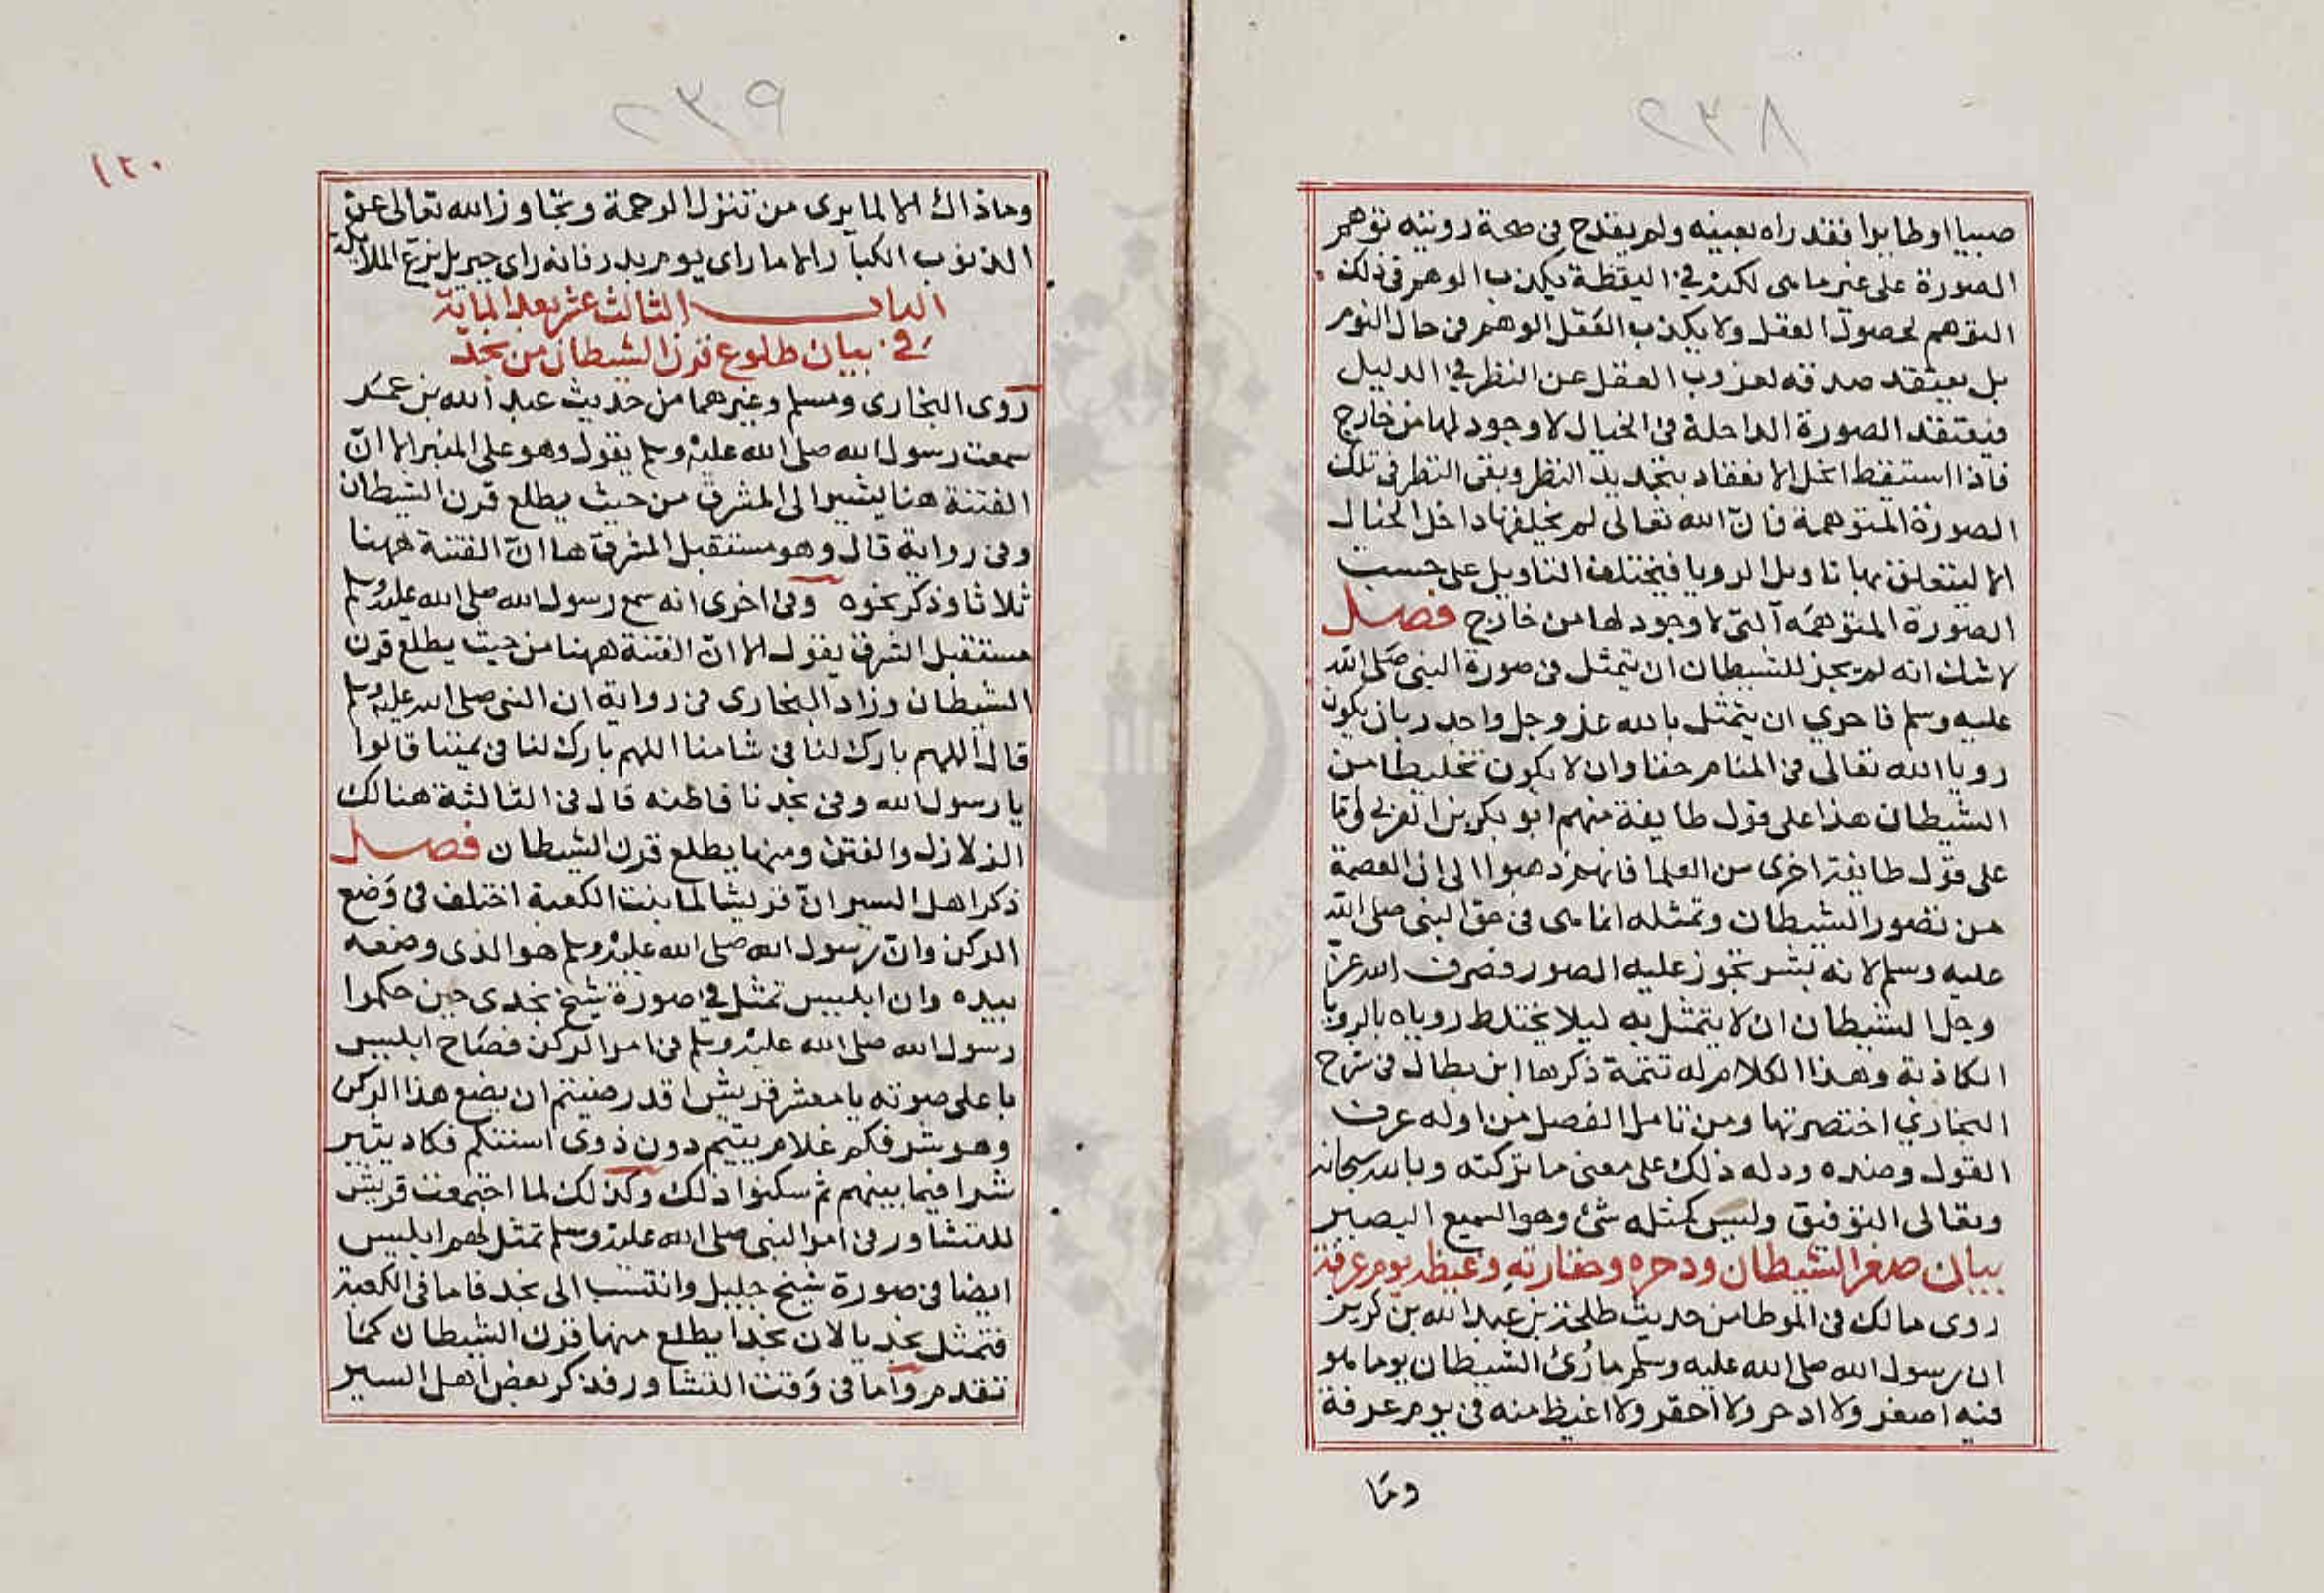 ٢٣٨
صبيا او طايرا فقد راه بعينه ولم يقدح في صحة رويته توهم
الصورة على غير ما هي لكن في اليقظة يكذب الوهم في ذلك
التوهم لحصول العقل ولا يكذب العقل الوهم في حال النوم
بل يعتقد صدقه لعزوب العقل عن النظر في الدليل
فيعتقد الصورة الداخلة في الخيال لا وجود لها من خارج
فاذا استيقظ انحل الاعتقاد بتجديد النظر وبقى النظر في تلك
الصورة المتوهمة فان الله تعالى لم يخلقها داخل الخيال
الا ليتعلق بها تاويل الرويا فيختلف التاويل على حسب
الصورة المتوهمة التي لا وجود لها من خارج فصل
لا شك انه لم يجز للشيطان ان يتمثل في صورة النبي صلى الله
عليه وسلم فاحري ان يتمثل بالله عز وجل واجدر بان يكون
رويا الله تعالى في المنام حقا وان لا يكون تخليطا من
الشيطان هذا على قول طايفة منهم ابو بكر بن العربي واما
على قول طايفة اخرى من العلما فانهم ذهبوا الى ان العصمة
من تصور الشيطان وتمثله انما هي في حق النبي صلى الله
عليه وسلم لانه بشر تجوز عليه الصور فصرف الله عز
وجل الشيطان ان لا يتمثل به ليلا يختلط روياه بالرويا
الكاذبة وهذا الكلام له تتمة ذكرها ابن بطال في شرح
البخاري اختصرتها ومن تامل الفصل من اوله عرف
القول وضده ودله ذلك على معنى ما تركته وبالله سبحانه
وتعالى التوفيق وليس كمثله شئ وهو السميع البصير
بيان صغر الشيطان ودحره وحقارته وغيظه يوم عرفة
روى مالك في الموطا من حديث طلحة بن عبد الله بن كريز
ان رسول الله صلى الله عليه وسلم ما رُئ الشيطان يوما هو
فيه اصغر ولا ادحر ولا احقر ولا اغيظ منه في يوم عرفة
وما
٢٣٩
١٢٠
وما ذاك الا لما يرى من تنزل الرحمة وتجاوز الله تعالى عن
الذنوب الكبار الا ما راى يوم بدر فانه راى جبريل يزع الملائكة
الباب الثالث عشر بعد الماية
في بيان طلوع قرن الشيطان من نجد
روى البخارى ومسلم وغيرهما من حديث عبد الله بن عمر
سمعت رسول الله صلى الله عليه وسلم يقول وهو على المنبر الا ان
الفتنة هنا يشير الى المشرق من حيث يطلع قرن الشيطان
وفي رواية قال وهو مستقبل المشرق ها ان الفتنة ههنا
ثلاثا وذكر نحوه وفي اخرى انه سمع رسول الله صلى الله عليه وسلم
مستقبل الشرق يقول الا ان الفتنة ههنا من حيث يطلع قرن
الشيطان وزاد البخارى في رواية ان النبي صلى الله عليه وسلم
قال اللهم بارك لنا في شامنا اللهم بارك لنا في يمننا قالوا
يا رسول الله وفي نجدنا فاظنه قال في الثالثة هنالك
الزلازل والفتن ومنها يطلع قرن الشيطان فصل
ذكر اهل السير ان قريشا لما بنت الكعبة اختلف في وضع
الركن وان رسول الله صلى الله عليه وسلم هو الذي وضعه
بيده وان ابليس تمثل في صورة شيخ نجدى حين حكموا
رسول الله صلى الله عليه وسلم في امر الركن فصاح ابليس
باعلى صوته يا معشر قريش اقد رضيتم ان يضع هذا الركن
وهو شرفكم غلام يتيم دون ذوى اسننكم فكاد يثير
شرا فيما بينهم ثم سكنوا ذلك وكذلك لما اجتمعت قريش
للتشاور في امر النبي صلى الله عليه وسلم تمثل لهم ابليس
ايضا في صورة شيخ جليل وانتسب الى نجد فاما في الكعبة
فتمثل نجديا لان نجدا يطلع منها قرن الشيطان كما
تقدم واما في وقت التشاور فذكر بعض اهل السير